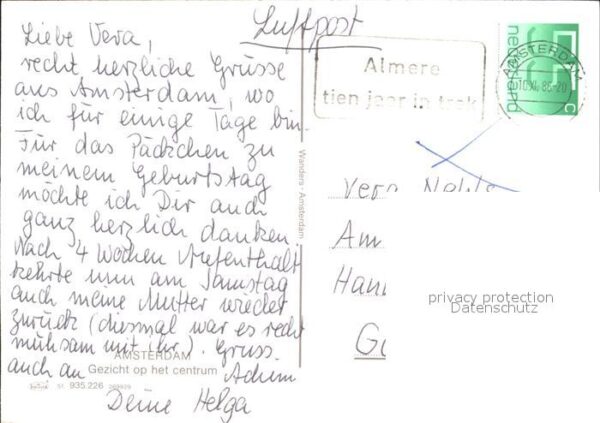 Luftpost
Liebe Vera,
recht herzliche Grüsse
aus Amsterdam, wo
ich für einige Tage bin.
Für das Päckchen zu
meinem Geburtstag
möchte ich Dir auch
ganz herzlich danken.
Nach 4 Wochen Aufenthalt
kehrte nun am Samstag
auch meine Mutter wieder
zurück (diesmal war es recht
mühsam mit ihr). Gruss
auch an Achim
Deine Helga
AMSTERDAM
Gezicht op het centrum
51 935.226
Wanders - Amsterdam
Almere
tien jaar in trek
AMSTERDAM
nederland
55 c
Vera
Am
Han
privacy protection
Datenschutz